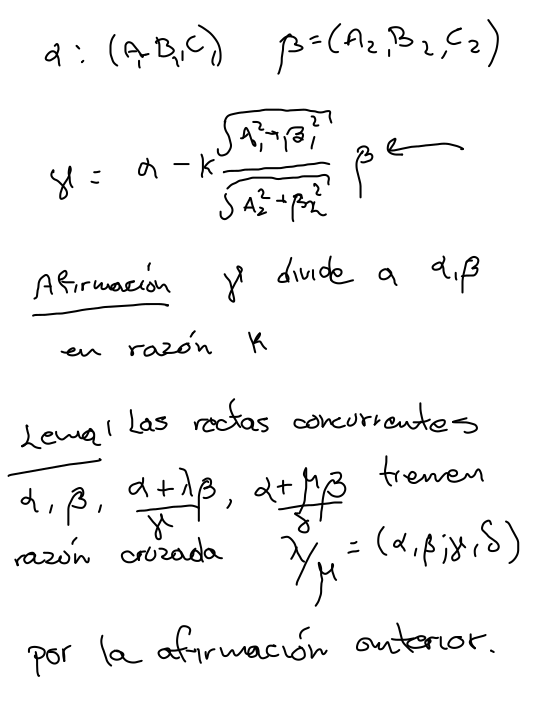 α : (A₁, B₁, C₁) β = (A₂, B₂, C₂)
γ = α - k √(A₁² + B₁²) / √(A₂² + B₂²) β ←
Afirmación γ divide a α, β
en razón k
Lema: Las rectas concurrentes
α, β, α + λβ, α + μβ tienen
γ δ
razón cruzada λ/μ = (α, β; γ, δ)
por la afirmación anterior.